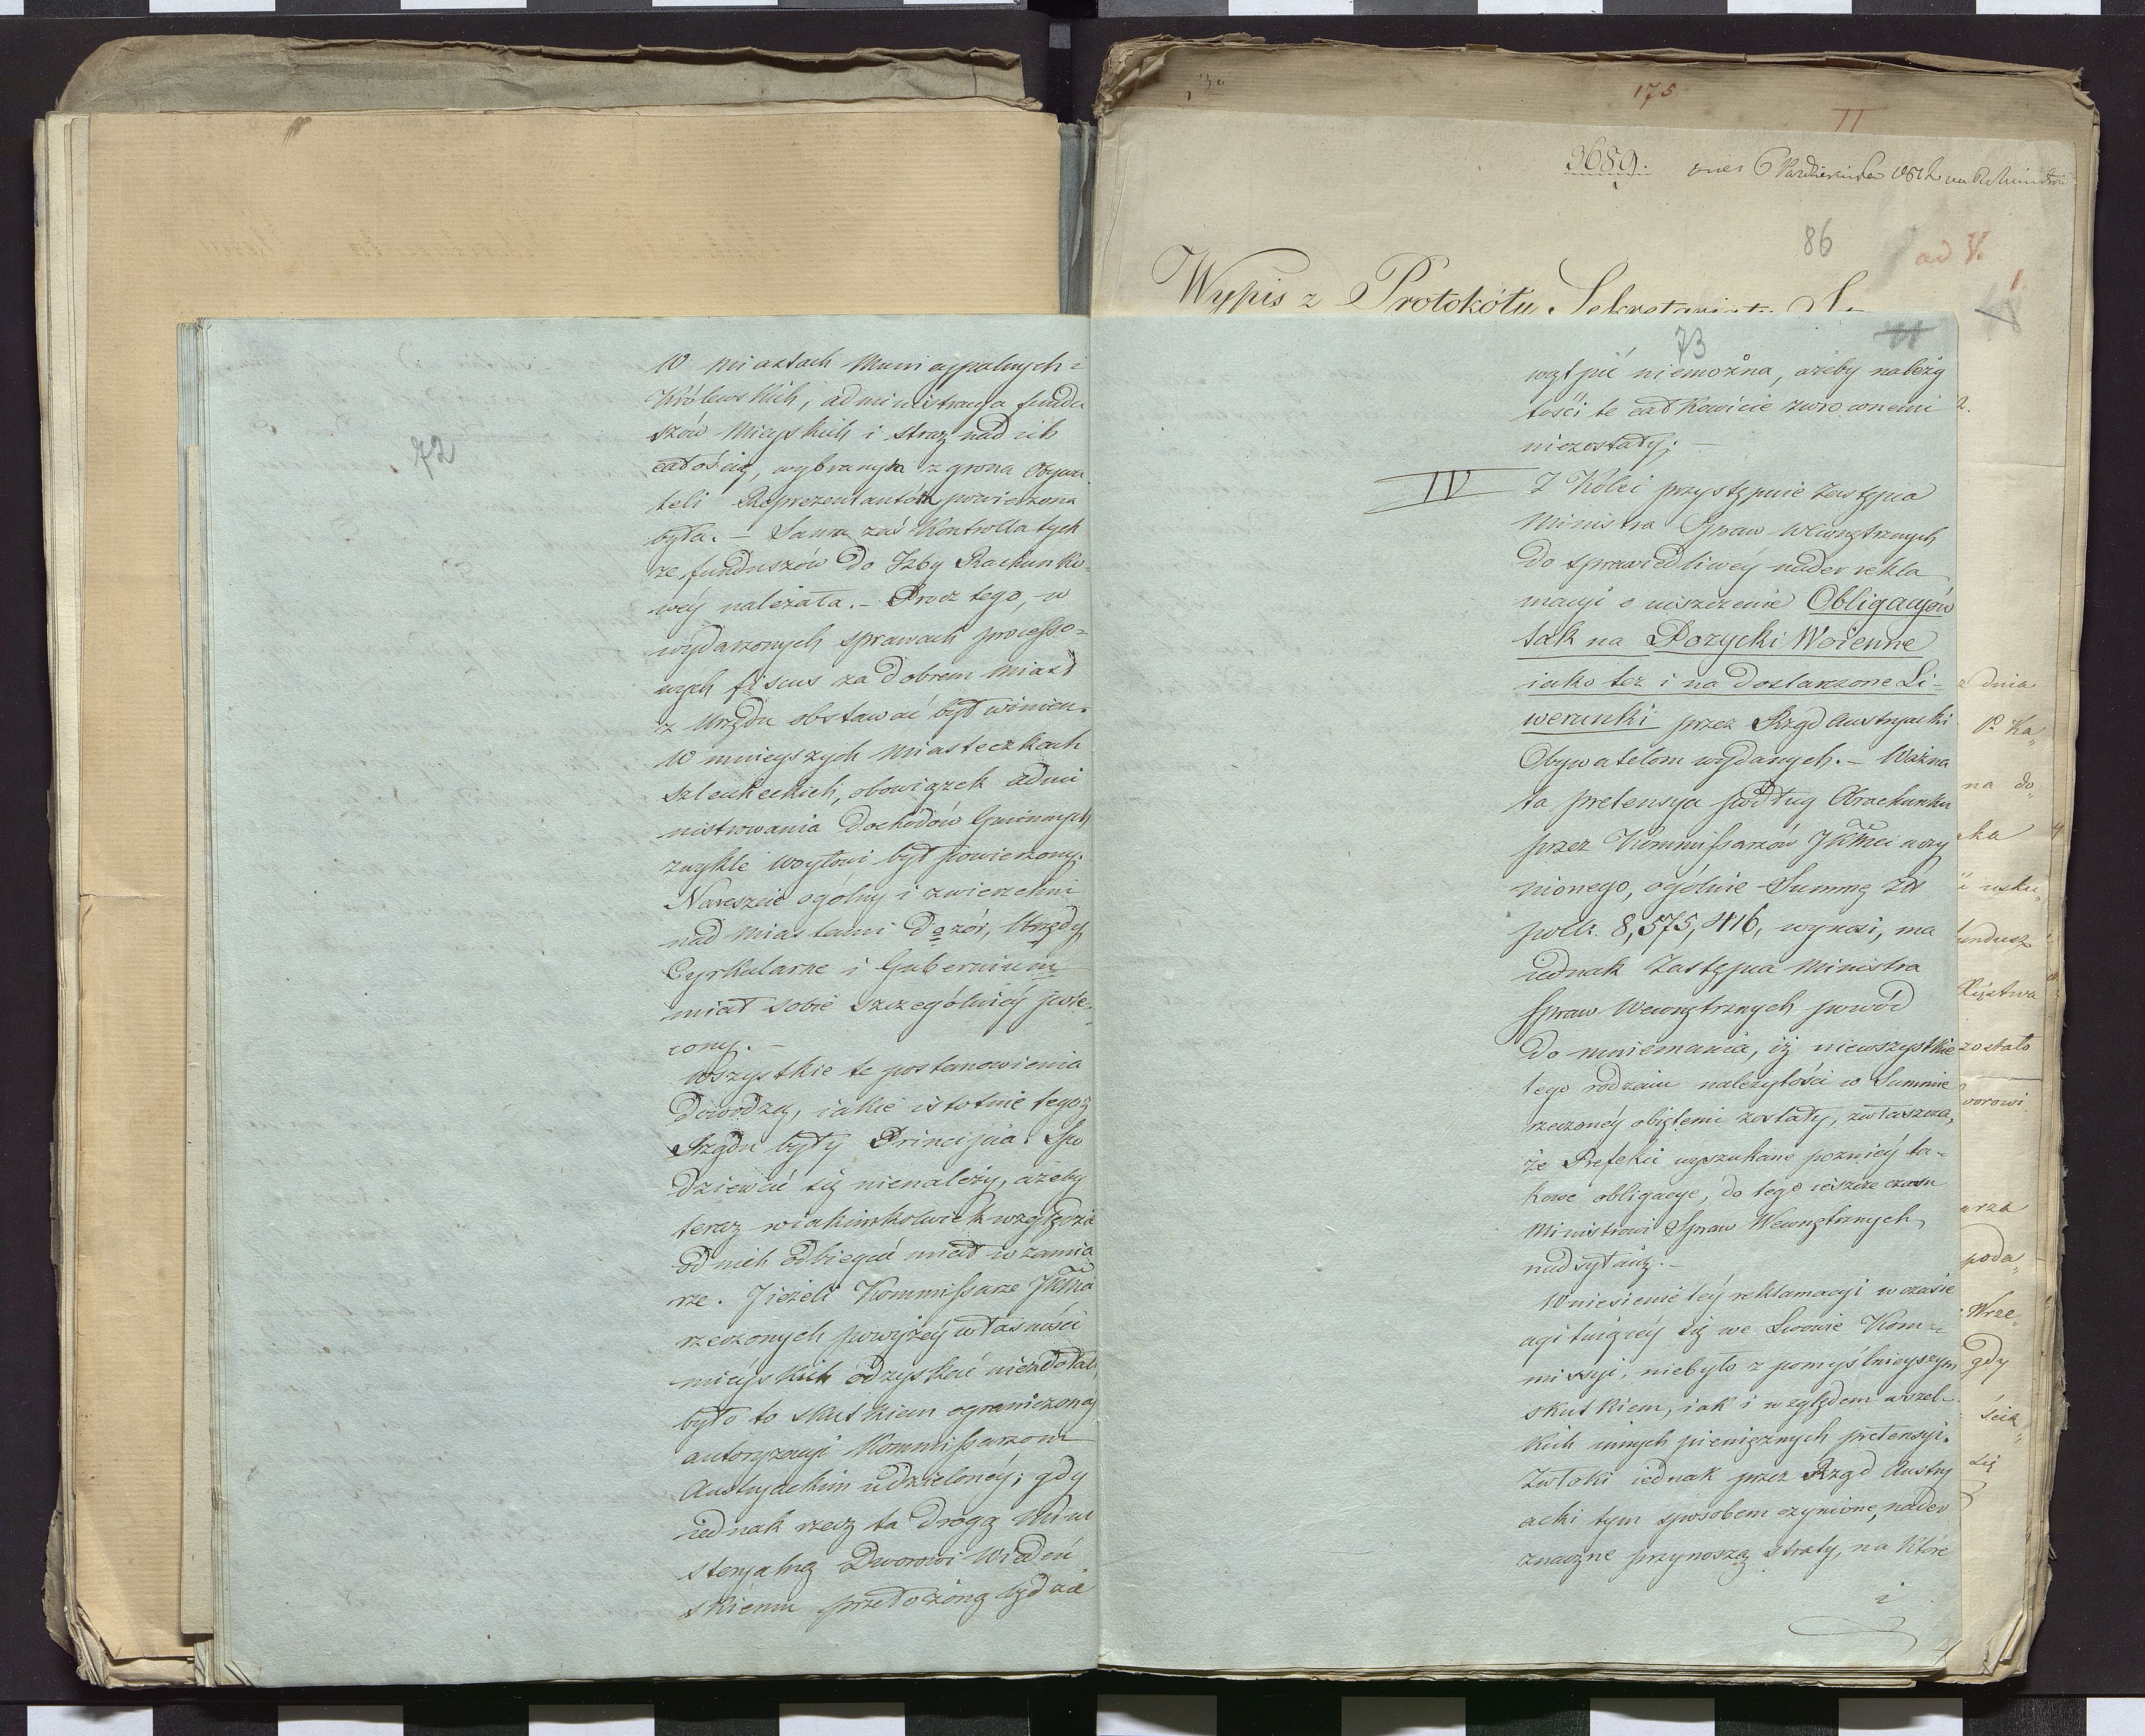 72
w miastach Municypalnych i
Królewskich, administracya fundu
szów Mieyskich i straż nad ich
całością, wybranym z grona Obywa
teli Reprezentantóm powierzona
była. – Sama zaś Kontrolla tych
że funduszów do Izby Rachunko-
wéy należała. – Procz tego, w
wydarzonych sprawach processo-
wych fiscus za dobrem Miast
z Urzędu obstawać był winien.
W mnieyszych Miasteczkach
szlacheckich, obowiązek admi
nistrowania Dochodów Gminnych
zwykle Woytowi był powierzony.
Nareszcie ogólny i zwierzchni
nad Miastami Dozór, Urzędy
Cyrkularne i Gubernium
miał sobie szczególniéy pole-
cony. –
Wszystkie te postanowienia
Dowodzą, iakie istotnie tegoż
Rządu były Principia. Spo
dziewać się nienależy, ażeby
teraz w iakimkolwiek względzie
od nich odbiegać miał w zamia
rze. Jieżeli Kommissarze JKMci
rzeczonych powyżéy własności
mieyskich odzyskać niezdołali,
było to skutkiem ograniczonéy
autoryzacyi Kommissarzom
Austryackim udzielonéy; gdy
iednak rzecz ta drogą Mini
steryalną Dworowi Wiedeń
skiemu przełożoną będzie
30
175
II
3689.
dnes 6 Października 1812
86
ad V.
1
Wypis z Protokółu Sekretariatu
73
11
wątpić niemożna, ażeby należy
tości te całkowicie zwróconemi
niezostały; –
IV Z Kolei przystępuie Zastępca
Ministra Spraw Wewnętrznych
Do sprawiedliwéy nader rekla
macyi o uiszczenie Obligacyów
tak na Pozycki Woienne
iako tez i na Dostarczone Li-
werunki przez Rząd Austryacki
Obywatelom wydanych. – Ważna
ta pretensya podług Obrachunku
przez Kommissarzów JKMci uczy
nionego, ogólnie Summę Zł
polk. 8,575,416, wynosi, ma
iednak Zastępca Ministra
Spraw Wewnętrznych powód
Do mniemania, iż niewszystkie
tego rodzaiu należytości w Summie
rzeczonéy obiętemi zostały, zwłaszcza,
że Prefekci wyszukane poźniéy ta-
kowe obligacye, do tego ieszcze czasu
Ministrowi Spraw Wewnętrznych
nadsyłaią. –
Wniesienie téy reklamacyi w czasie
agituiącéy się we Lwowie Kom-
missyi, niebyło z pomyślnieyszym
skutkiem, iak i względem wszel-
kich innych pieniężnych pretensyi.
Zwłoki iednak przez Rząd Austry
acki tym sposobem czynione, nader
znaczne przynoszą straty, na które
i
2.
z dnia
P. Ka„
na do„
ska
i usku„
fundusz
Xięstwa
zostało
worowi
arza
poda„
Wrze„
gdy
ścia„
się